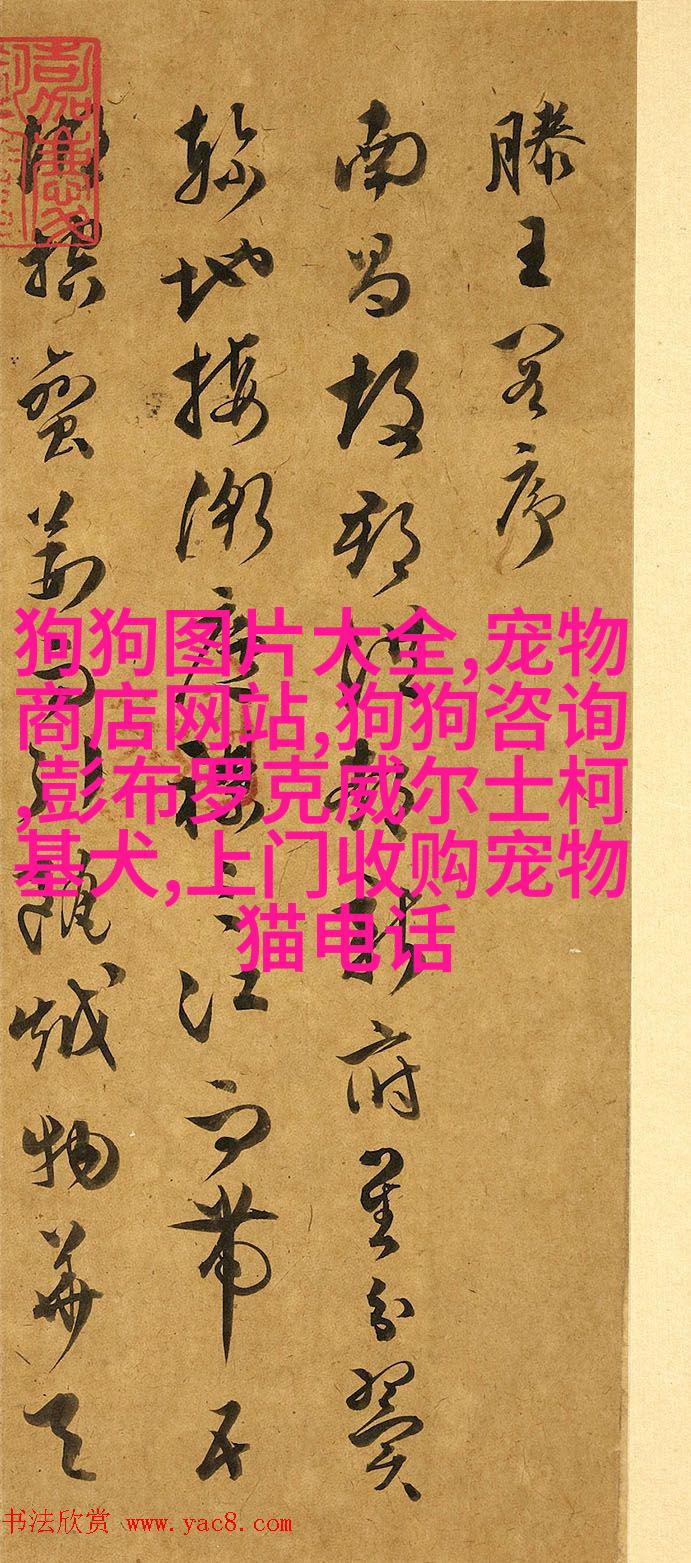 滕王阁序
南昌故郡洪都新府星分翼
轸地接衡庐襟三江而带五
湖控蛮荆而引瓯越物华天
狗狗图片大全,宠物
商店网站,狗狗咨询
,彭布罗克威尔士柯
基犬,上门收购宠物
猫电话
书法欣赏 www.yac8.com